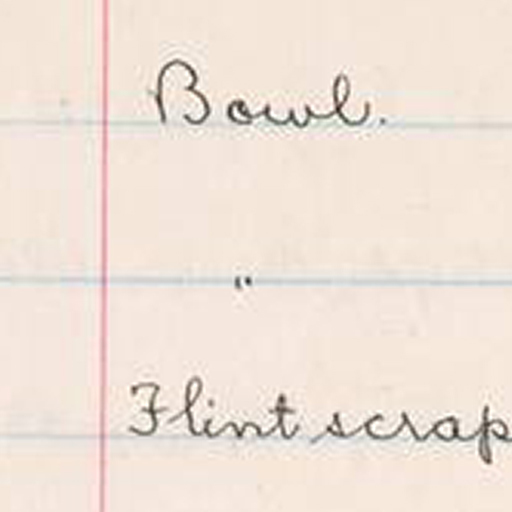 Bowl.
"
Flint scrap